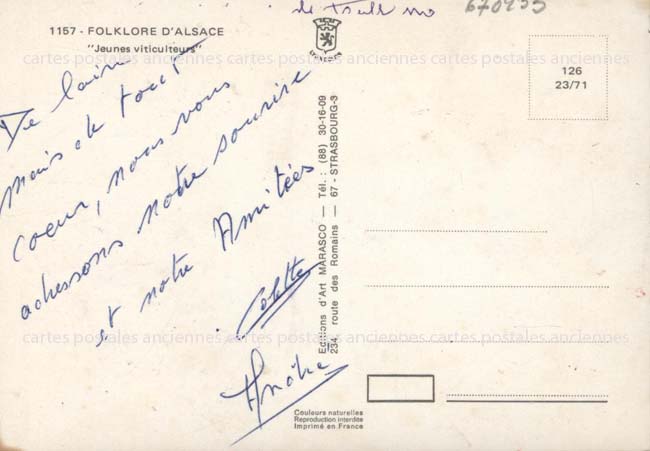 1157 - FOLKLORE D'ALSACE
"Jeunes viticulteurs"
De loin
mais de tout
coeur, nous vous
adressons notre sourire
et notre Amitiées
Colette
André
126
23/71
Editions d'Art MARASCO — Tél. : (88) 30-16-09
234, route des Romains — 67 - STRASBOURG-3
Couleurs naturelles
Reproduction interdite
Imprimé en France
cartes postales anciennes cartes postales anciennes cartes postales anciennes
cartes postales anciennes cartes postales anciennes cartes postales anciennes
cartes postales anciennes cartes postales anciennes cartes postales anciennes